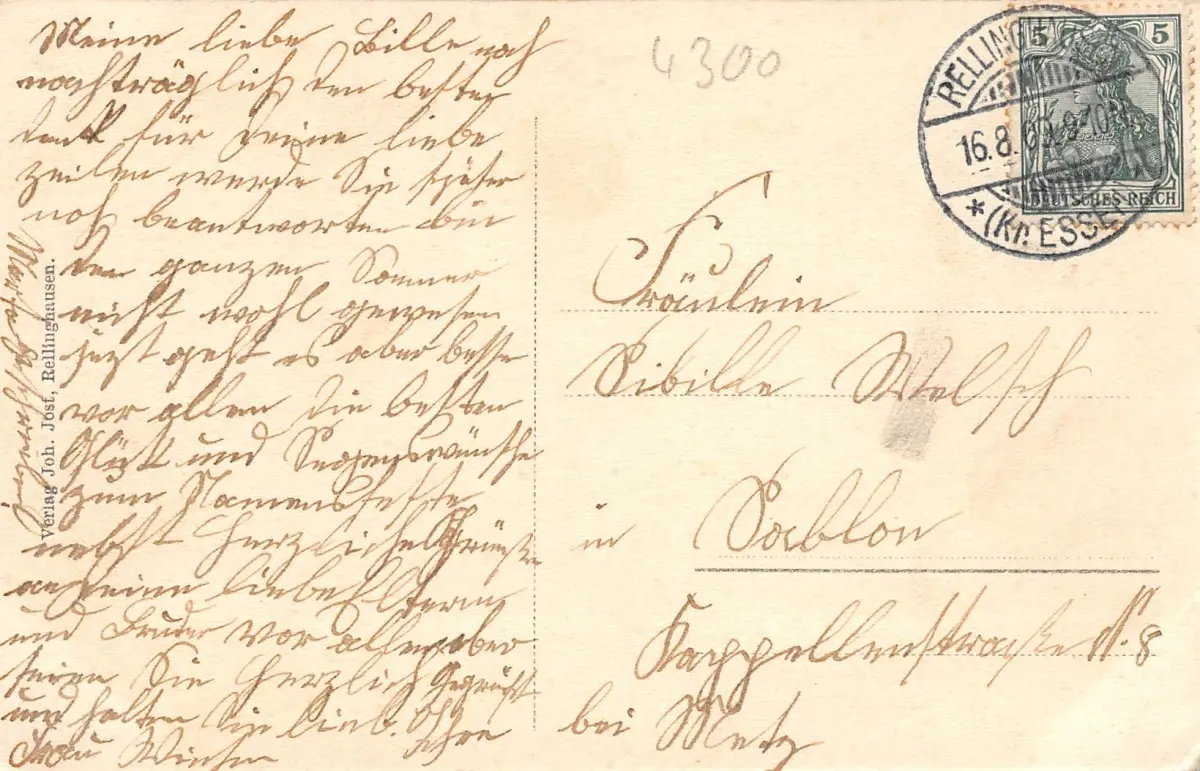 Meine liebe Bille noch
nachträglich den besten
Dank für Deine liebe
Zeilen werde Sie später
noch beantworten bin
den ganzen Sommer
nicht wohl gewesen
jezt geht es aber besse
vor allen die besten
Glück und Segenswünsche
zum Namensfeste
nebst Herzliche Grüße
an deine liebe Eltern
und Bruder vor allen aber
seien Sie Herzlich Gegrüßt
und halten Sie lieb. Ihre
Frau
Verlag Joh. Jost, Rellinghausen.
4300
RELLINGH
16.8.09.9-10
* (Kr. ESSE
5 5
DEUTSCHES REICH
Fräulein
Sibille Welsch
in Sablon
Kappellenstraße N. 8
bei Metz